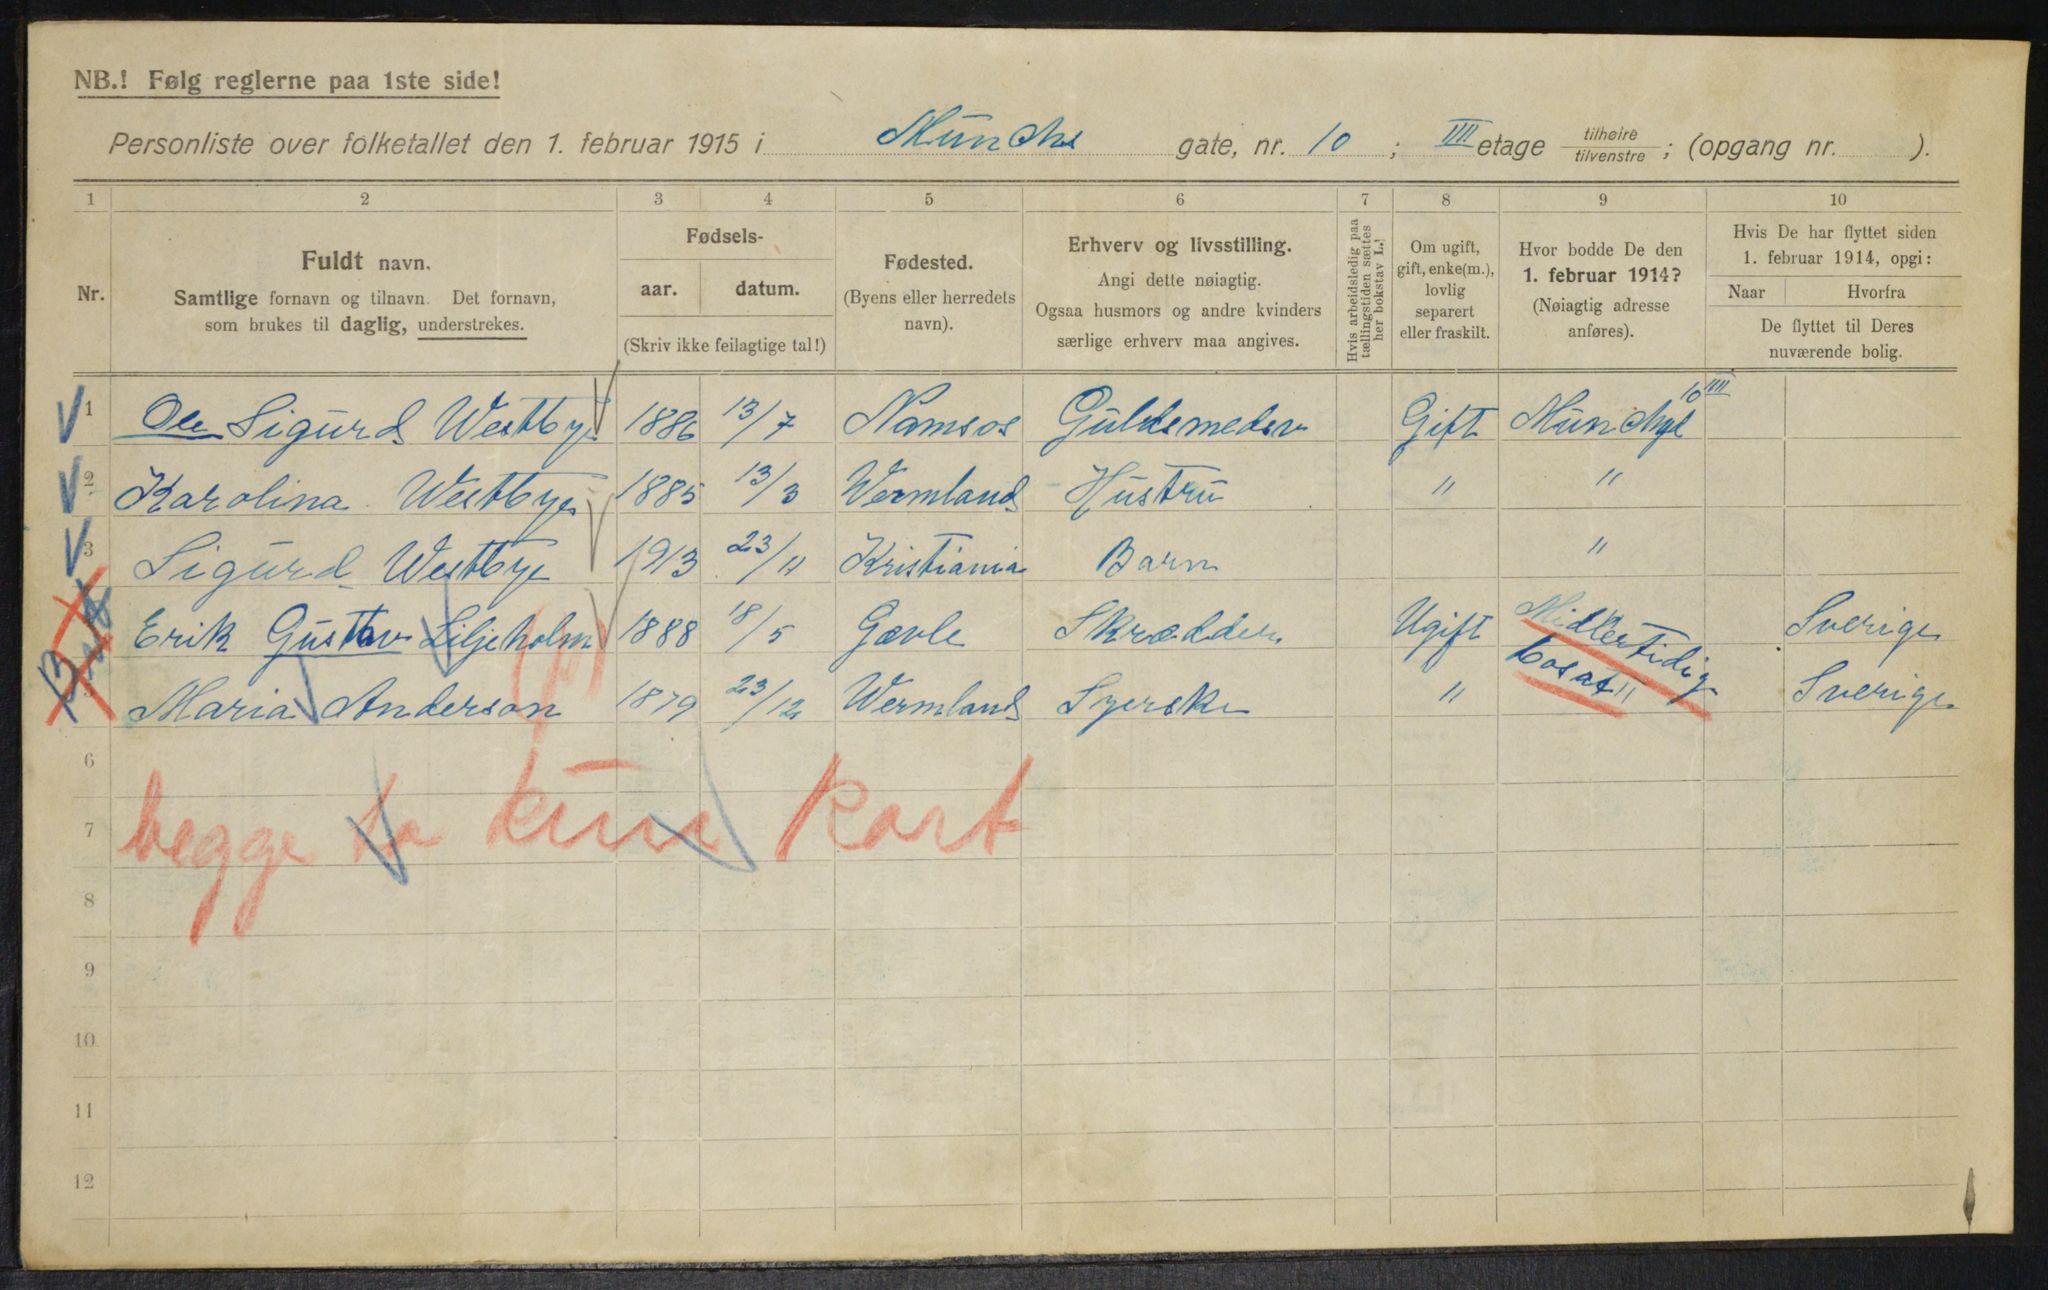 NB.! Følg reglerne paa 1ste side!
Personliste over folketallet den 1. februar 1915 i Münchs gate, nr. 10 ; IIII etage tilhøire/tilvenstre ; (opgang nr. ).
1 2 3 4 5 6 7 8 9 10
Nr.
Fuldt navn.
Samtlige fornavn og tilnavn. Det fornavn,
som brukes til daglig, understrekes.
Fødsels-
aar. datum.
(Skriv ikke feilagtige tal!)
Fødested.
(Byens eller herredets
navn).
Erhverv og livsstilling.
Angi dette nøiagtig.
Ogsaa husmors og andre kvinders
særlige erhverv maa angives.
Hvis arbeidsledig paa
tællingstiden sættes
her bokstav L.!
Om ugift,
gift, enke(m.),
lovlig
separert
eller fraskilt.
Hvor bodde De den
1. februar 1914?
(Nøiagtig adresse
anføres).
Hvis De har flyttet siden
1. februar 1914, opgi:
Naar Hvorfra
De flyttet til Deres
nuværende bolig.
1 Ole Sigurd Westbye 1886 13/7 Namsos Guldsmedsv Gift Münchgt 10 IIII
2 Karolina Westbye 1885 13/3 Wermland Hustru " "
3 Sigurd Westbye 1913 23/11 Kristiania Barn "
Erik Gustav Liljeholm 1888 18/5 Gævle Skrædder Ugift Midlertidig Sverige
bosat
Maria Anderson 1879 23/12 Wermland Syerske " " Sverige
6
7 begge to kun kort
8
9
10
11
12